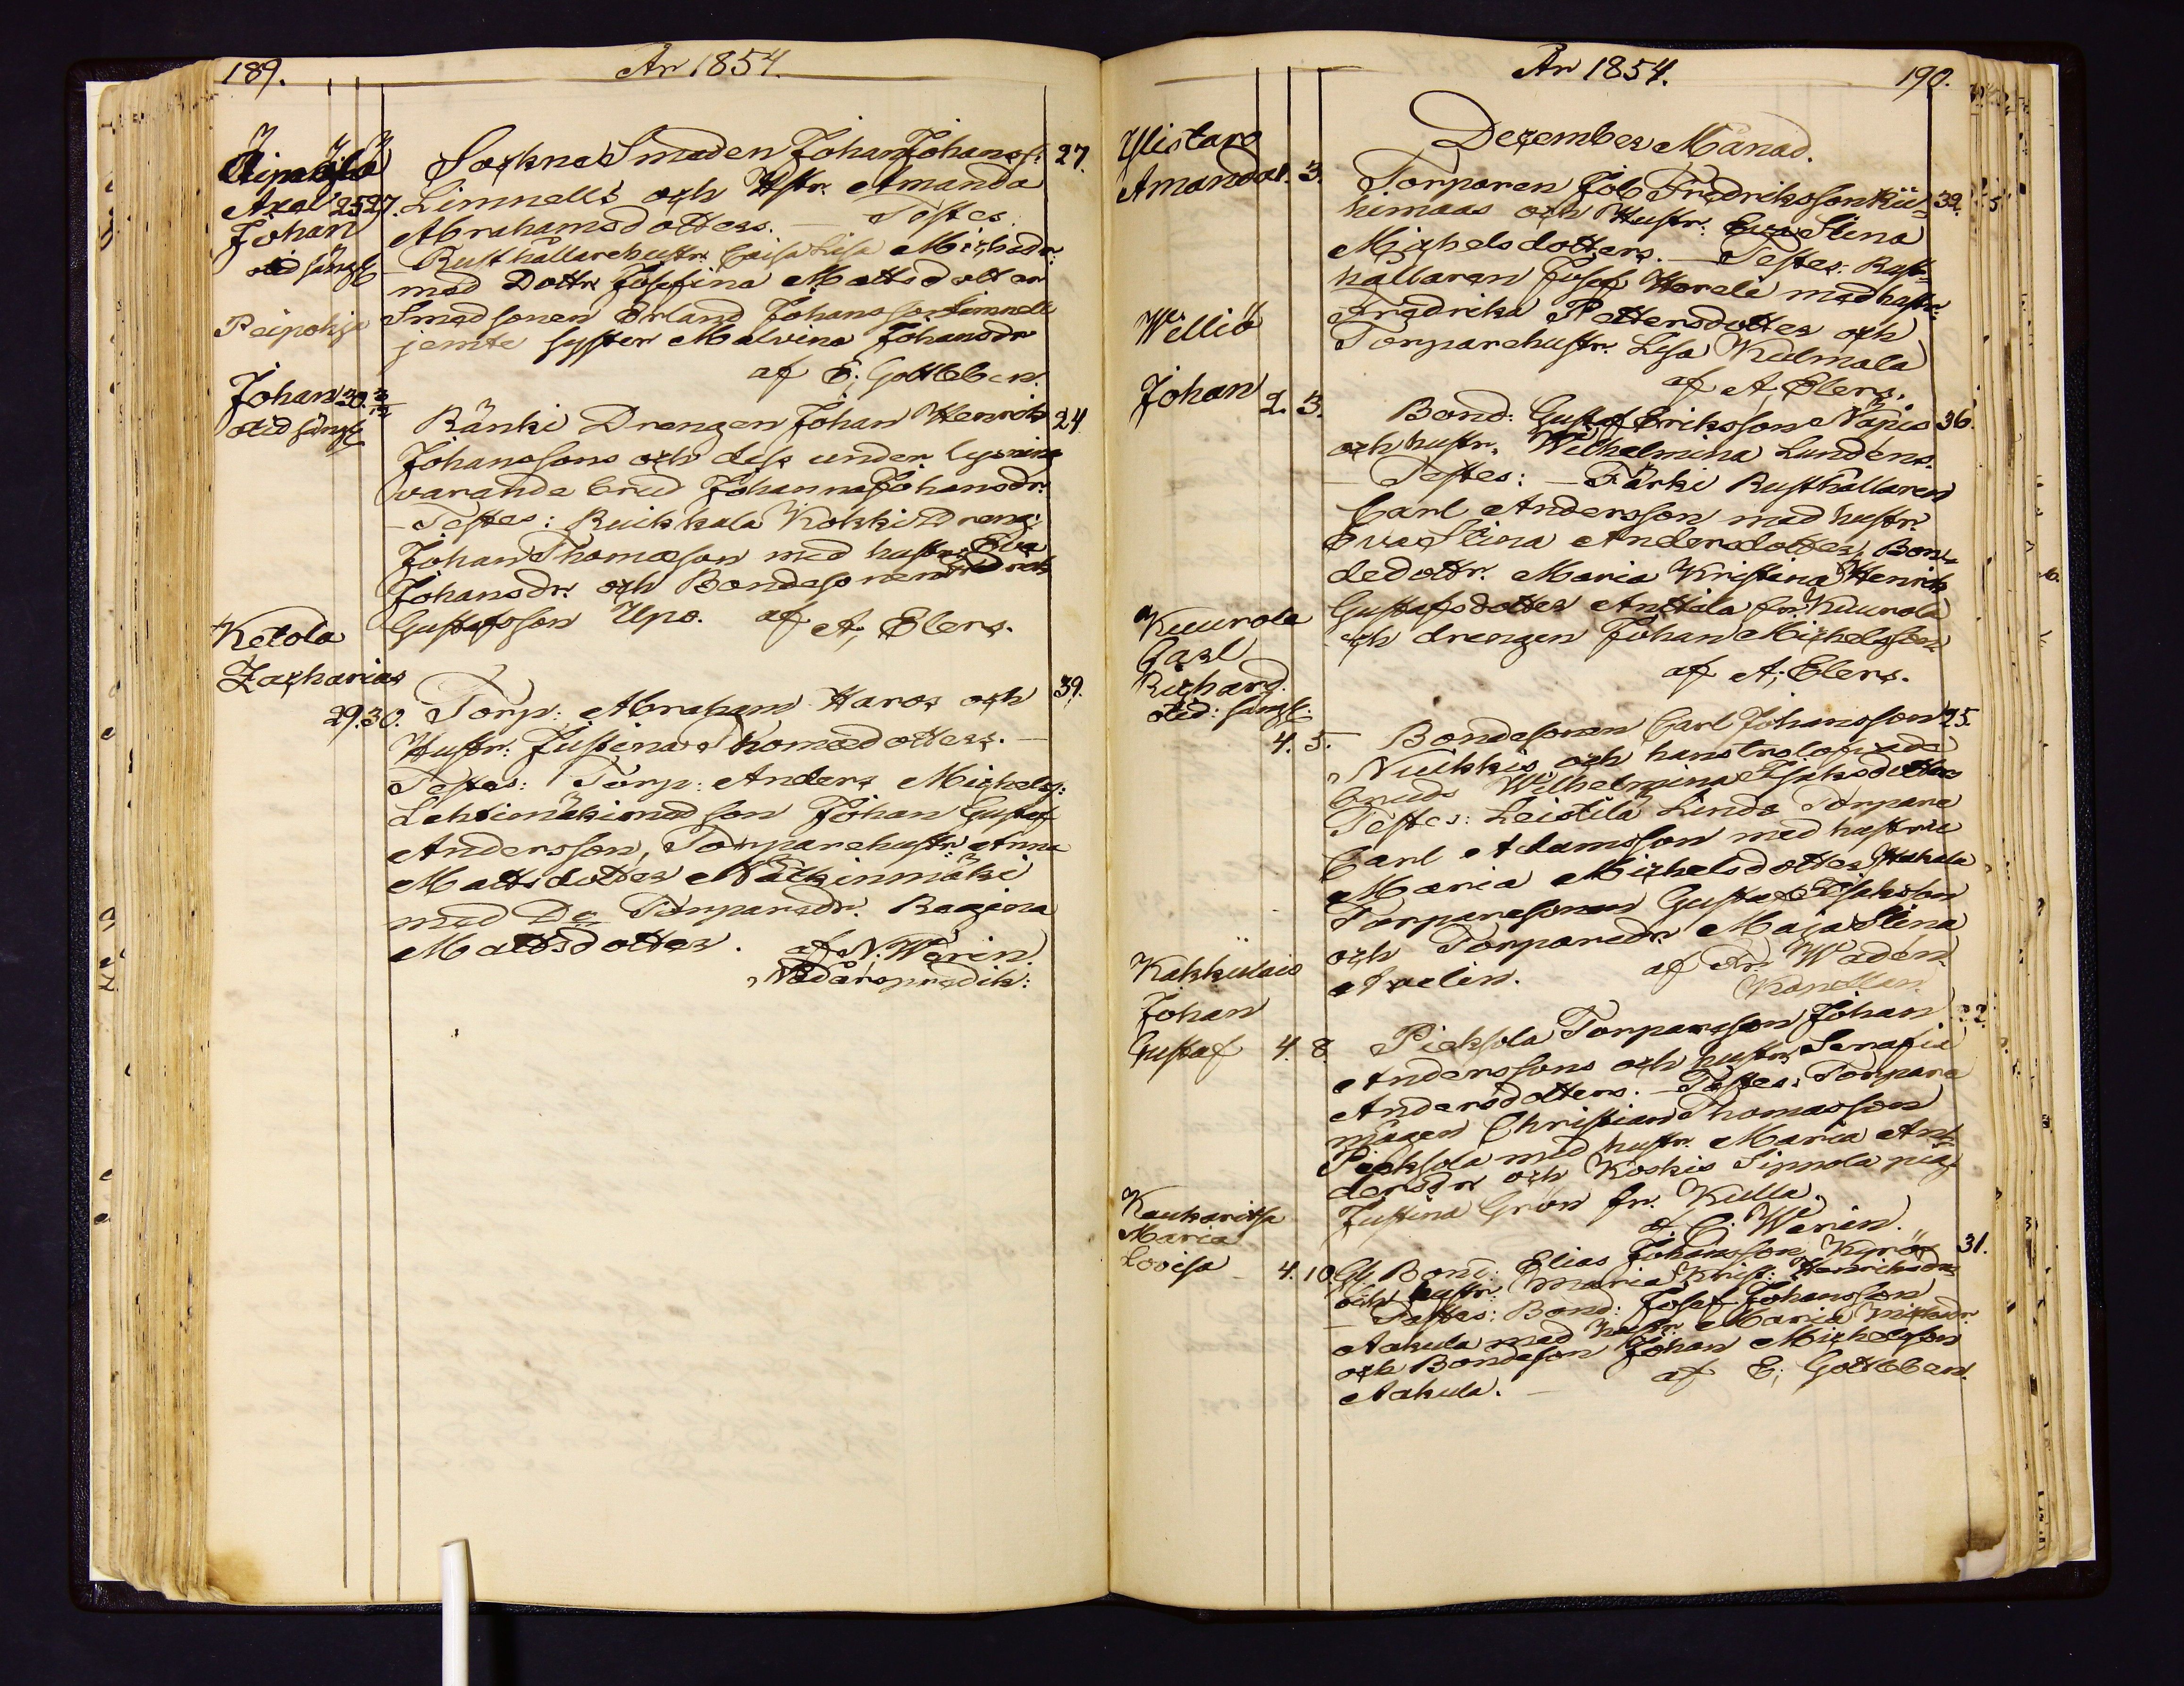 189. År 1854.
Äimälä
Sockne Smeden Johan Johanss: 27.
Axel 25 27. Limnells och Hstr. Amanda
Johan Abrahamsdotters. — Testes
Rusthållarehustr. Caisa Lisa Michsdr.
med Dottr Josefina Mattsdotter
Peipohja Smedsonen Erland Johansson Limnell
jemte syster Malvina Johansdr
af E; Gottleben.
Johan 30. 3/12
Ränki Drengen Johan Henrik 24
Johanssons och dess under lysning
varande brud Johanna Johansdr.
— Testes: Ruikkala Kokki dreng:
Johan Thomasson med hustr. Eva
Johansdr. och Bondesonen Fredrik
Gustafsson Upo. af A; Elers.
Ketola
Zacharias
29. 30. Torp: Abraham Haros och 39.
Hustr: Justina Thomædotters. —
Testes: Torp: Anders Michelss:
Lehtimäki med son Johan Gustaf
Andersson, Torparehustr. Anna
Mattsdotter Näckinmäki
med Do Torparedr. Regina
Mattsdotter. af N. Werin
Nådårspredik:
År 1854. 190.
December Månad.
Ylistaro
Amanda 1. 3. Torparen Job Fredriksson Kii- 39.
kimaas och Hustr. Eva Stina
Michelsdotters. — Testes: Rust-
hållaren Josef Hareli med hustr.
Fredrika Pettersdotter och
Torparehustr. Lisa Kulmala
af A; Elers.
Williö
Johan 2. 3. Bond: Gustaf Eriksson Näpis 36.
och hustr. Wilhelmina Lundens.
— Testes: — Färki Rusthållaren
Carl Andersson med hustr.
Eva Stina Andersdotter, Bon-
dedottr. Maria Kristina Henrik
Gustafsdotter Anttila fr. Kuurola
och drengen Johan Michelsson
af A; Elers.
Kuurola
Carl
Richard.
4. 5. Bondesonen Carl Johansson 25.
Nuikkis och hans trolofvade
bruds Wilhelmina Isaksdotters
Testes: Leistilä Lindo Torpare
Carl Adamsson med hustru
Maria Michelsdotter, Hakala
Torparesonen Gustaf Isaksson
och Torparedr. Maja Stina
Avelin. af Fr. Wadén
Kapellan
Kakkulais
Johan
Gustaf 4. 8. Pieksola Torpareson Johan
Anderssons och hustr. Serafia
Andersdotters. — Testes: Torpare
mågen Christian Thomasson
Pieksola med hustr. Maria An-
dersdr och Koskis Sippola pig
Justina Grön fr. Kulla.
af C. Werin.
Kaukaritsa
Maria
Lovisa 4. 10. Gl. Bond: Elias Johansson Kyrö 31.
och hustr. Maria Krist: Henriksdrs
— Testes: Bond: Josef Johansson
Aakula med hustr. Maria Michsdr.
och Bondeson Johan Michelsson
Aakula. — af E; Gottleben.